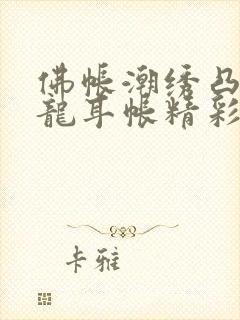 佛帐潮绣凸
龍耳帐精彩
卡雅